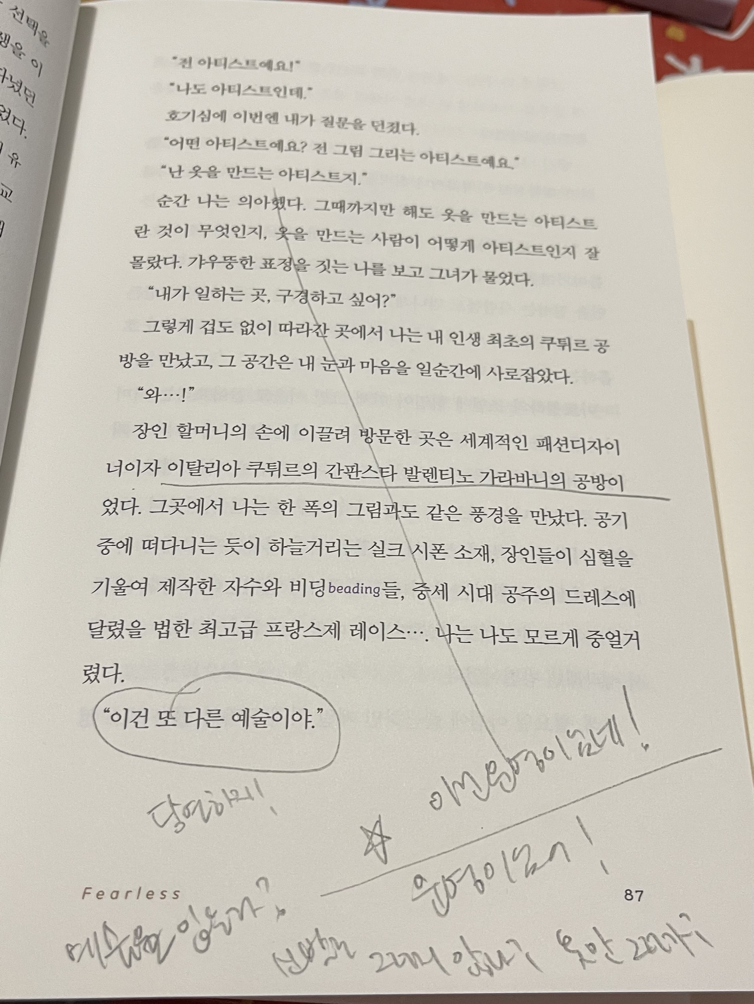 선택을
생을 이
다녔던
렀다.
유
교
"전 아티스트예요!"
"나도 아티스트인데."
호기심에 이번엔 내가 질문을 던졌다.
"어떤 아티스트예요? 전 그림 그리는 아티스트예요."
"난 옷을 만드는 아티스트지."
순간 나는 의아했다. 그때까지만 해도 옷을 만드는 아티스트
란 것이 무엇인지, 옷을 만드는 사람이 어떻게 아티스트인지 잘
몰랐다. 갸우뚱한 표정을 짓는 나를 보고 그녀가 물었다.
"내가 일하는 곳, 구경하고 싶어?"
그렇게 겁도 없이 따라간 곳에서 나는 내 인생 최초의 쿠튀르 공
방을 만났고, 그 공간은 내 눈과 마음을 일순간에 사로잡았다.
"와…!"
장인 할머니의 손에 이끌려 방문한 곳은 세계적인 패션디자이
너이자 이탈리아 쿠튀르의 간판스타 발렌티노 가라바니의 공방이
었다. 그곳에서 나는 한 폭의 그림과도 같은 풍경을 만났다. 공기
중에 떠다니는 듯이 하늘거리는 실크 시폰 소재, 장인들이 심혈을
기울여 제작한 자수와 비딩beading들, 중세 시대 공주의 드레스에
달렸을 법한 최고급 프랑스제 레이스…. 나는 나도 모르게 중얼거
렸다.
"이건 또 다른 예술이야."
당연하지!
Fearless
87